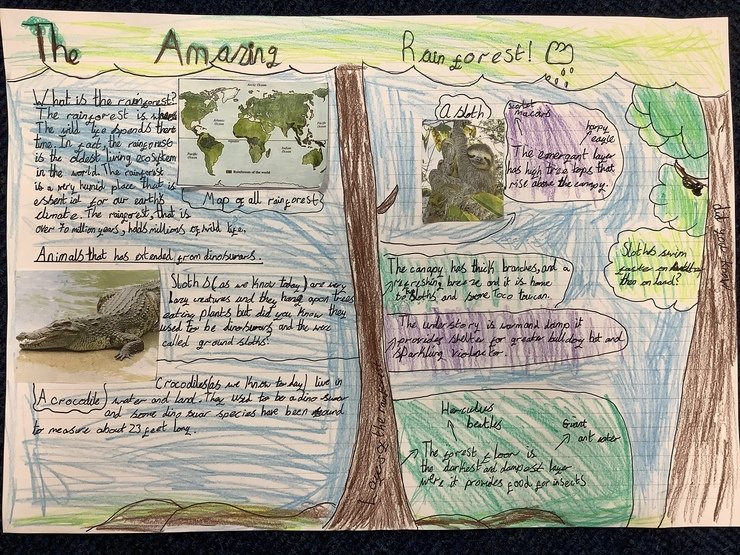 The Amazing Rainforest!
What is the rainforest?
The rainforest is where
The wild life spends there
time. In fact, the rainforest
is the oldest living ecosystem
in the world. The rainforest
is a very humid place that is
essential for our earths
climate. The rainforest, that is
over 70 million years, holds millions of wild life.
Map of all rainforest
Rainforests of the world
Animals that has extended from dinosuars.
Sloths (as we know today) are very
lazy creatures and they hang upon trees
eating plants but did you know they
used to be dinosuars and the were
called ground sloths!
A crocodile
Crocodiles (as we know today) live in
water and land. They used to be a dino suar
and some dino suar species have been found
to measure about 23 feet long.
A sloth
scarlet
macaws
harpy
eagle
The emergant layer
has high tree tops that
rise above the canopy.
The canapy has thick branches, and a
refreshing breeze and it is home
to sloths and some Toco toucan.
The understory is warm and damp it
provides shelter for greater bulldog bat and
sparkling violeator.
Herculues
beetles
Giant
ant eater
The forest floor is
the darkest and dampest layer
were it provides food for insects
did you know
Sloths swim
easier on
then on land!
Layers of the rainforest